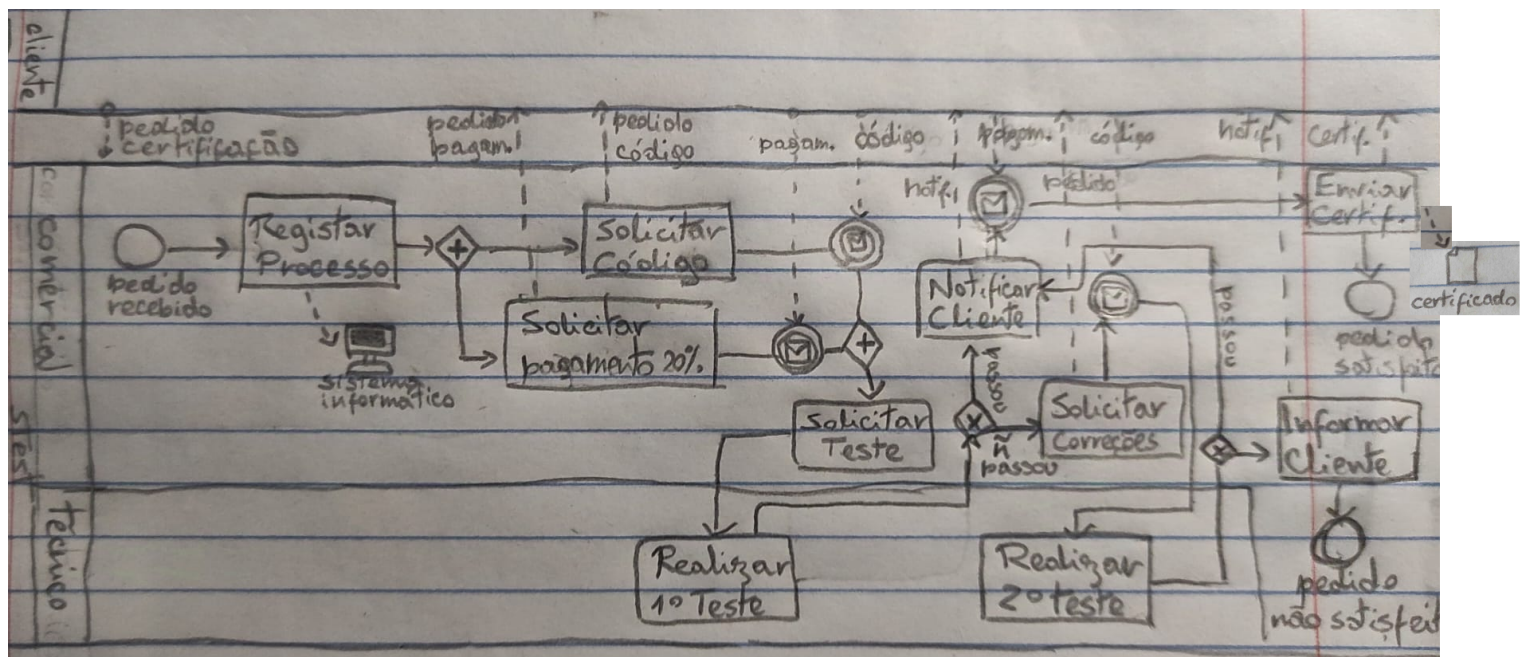 cliente
pedido
certificação
pedido
pagam.
pedido
código
pagam.
código
notif.
pagam.
pedido
código
notif.
certif.
Comercial
pedido
recebido
Registar
Processo
sistema
informático
Solicitar
Código
Solicitar
pagamento 20%.
Solicitar
Teste
Notificar
Cliente
passou
ñ
passou
Solicitar
Correções
passou
Enviar
Certif.
certificado
pedido
satisfeito
Informar
Cliente
STest
Técnico
Realizar
1º Teste
Realizar
2º teste
pedido
não satisfeit